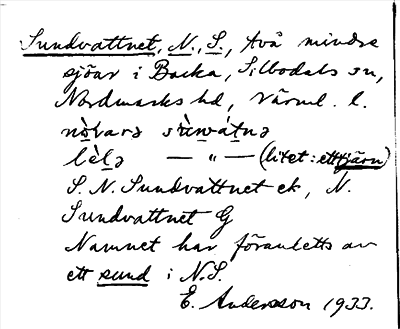 Sundvattnet, N., S., två mindre
sjöar i Backa, Silbodals sn,
Nordmarks hd, Värml. l.
nòvarə sùnwátnə
lèlə — " — (litet: ett tjärn)
S. N. Sundvattnet ek, N.
Sundvattnet G
Namnet har föranletts av
ett sund i N.S.
E. Andersson 1933.